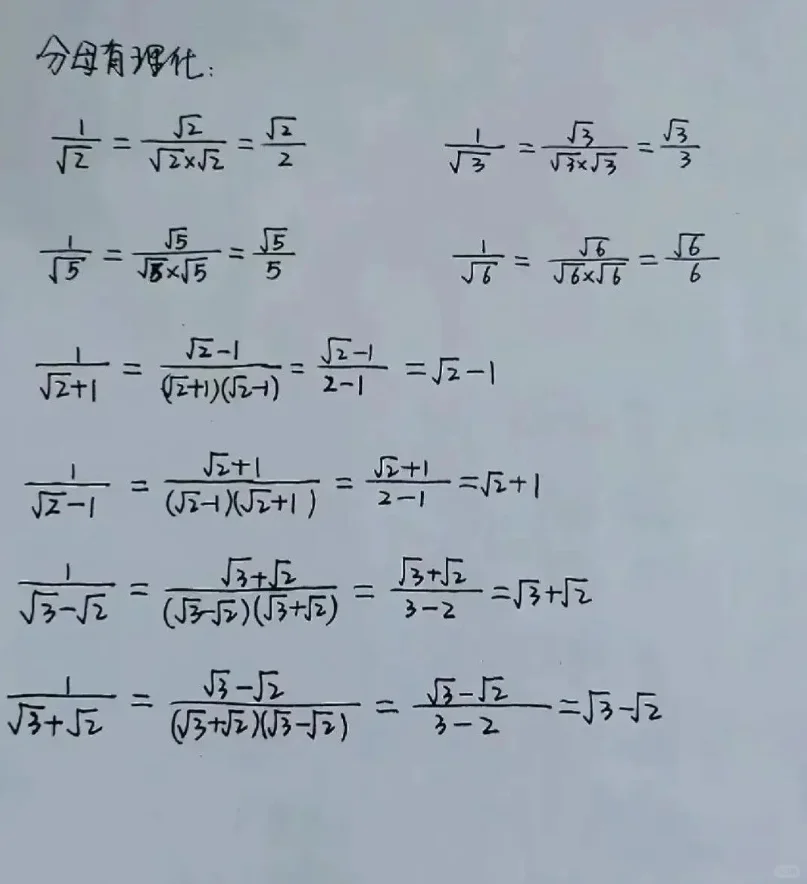 分母有理化:
1/√2 = √2/(√2×√2) = √2/2    1/√3 = √3/(√3×√3) = √3/3
1/√5 = √5/(√5×√5) = √5/5    1/√6 = √6/(√6×√6) = √6/6
1/(√2+1) = (√2-1)/((√2+1)(√2-1)) = (√2-1)/(2-1) = √2-1
1/(√2-1) = (√2+1)/((√2-1)(√2+1)) = (√2+1)/(2-1) = √2+1
1/(√3-√2) = (√3+√2)/((√3-√2)(√3+√2)) = (√3+√2)/(3-2) = √3+√2
1/(√3+√2) = (√3-√2)/((√3+√2)(√3-√2)) = (√3-√2)/(3-2) = √3-√2